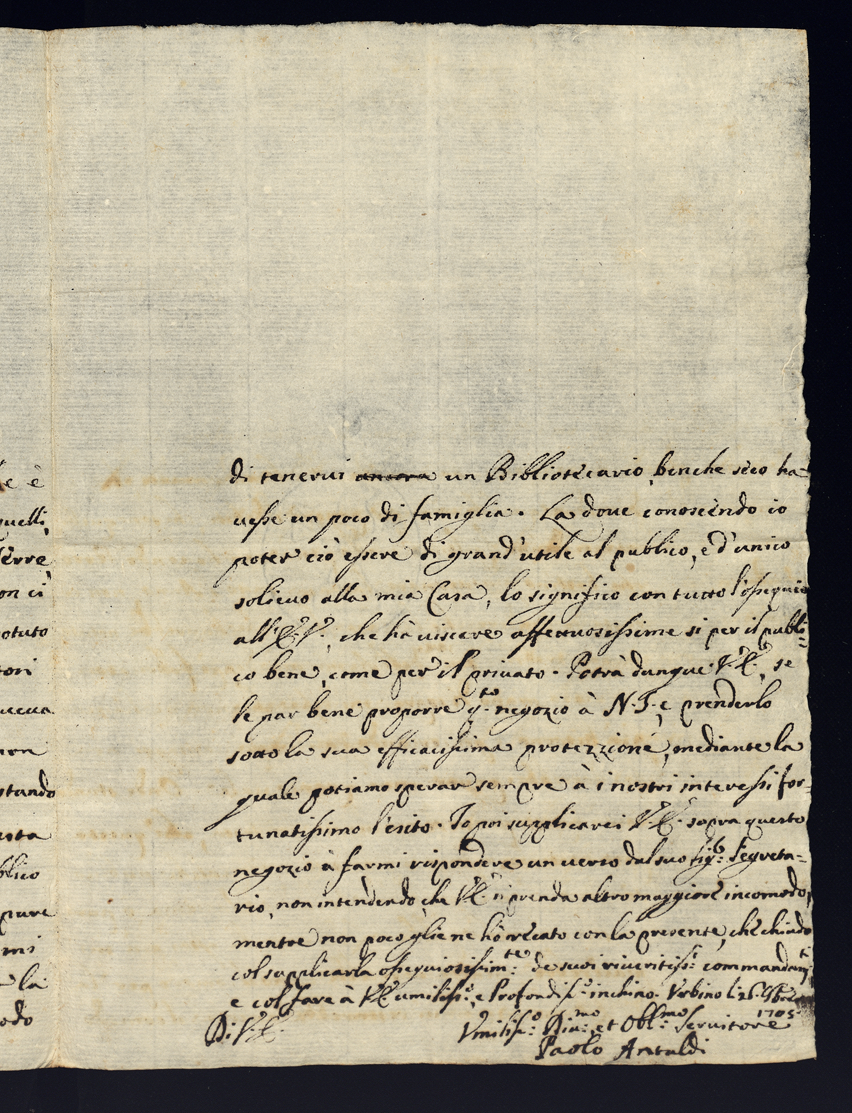 e è
quelli,
Terre
on ci
potuto
tori
non
ntando
esta
blico
pure
mi
la
odo
di tenerui ancora un Bibliotecario, benche seco ha=
uesse un poco di famiglia. La doue conoscendo io
poter ciò essere di grand'utile al publico, e d'unico
solieuo alla mia Casa, lo significo con tutto l'ossequio
all' V.E. che hà uiscere affettuosissime si per il publi=
co bene, come per il priuato. Potrà dunque V.E., se
le par bene proporre q.to negozio à N.S. e prenderlo
sotto la sua efficacissima protezzione, mediante la
quale potiamo sperar sempre à i nostri interessi for=
tunatissimo l'esito. Io poi supplicarei V.E. sopra questo
negozio à farmi rispondere un uerso dal suo sig.r Segreta=
rio, non intendendo, che V.E. si prenda altro maggiore incomodo,
mentre non poco gliene hò recato con la presente, che chiudo
col supplicarla ossequiosissim.te de suoi riueritiss.i commandam.ti
e col fare à V.E. umiliss.o, e Profondiss.o inchino. Vrbino li 26. 9bre
1705
Di V.E.
Vmiliss.o Diu.mo et Obl.mo Seruitore
Paolo Antaldi